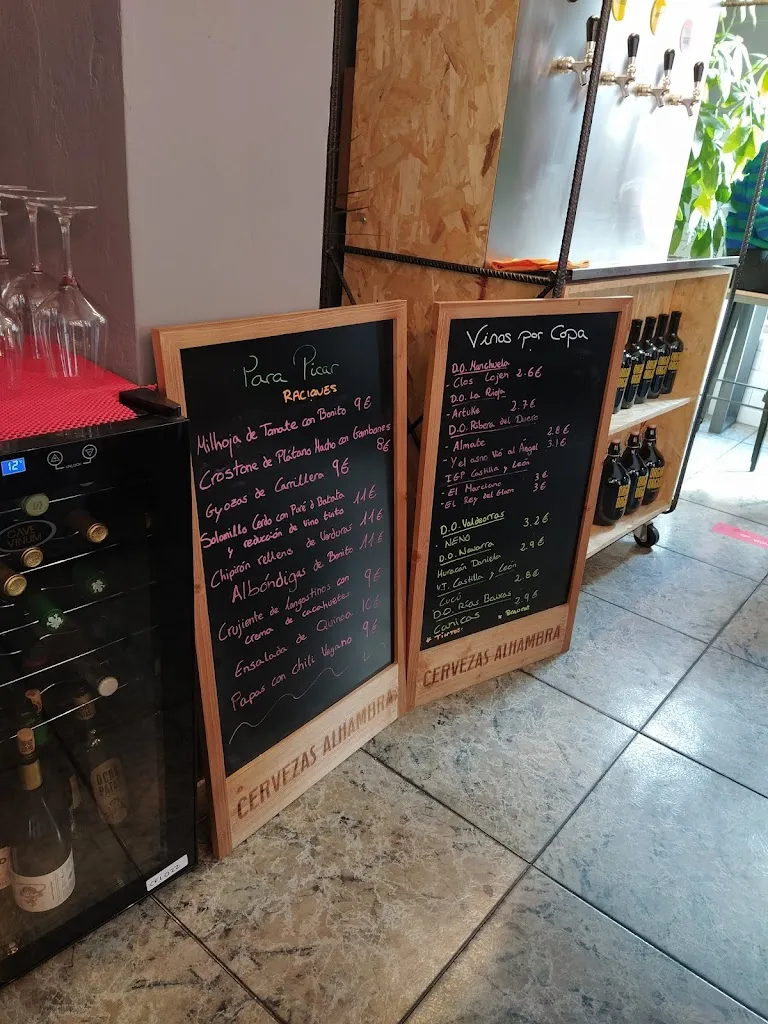 Para Picar
RACIONES
Milhoja de Tomate con Bonito 9€
Crostone de Plátano Macho con Gambones 8€
Gyozas de Carrillera 9€
Solomillo Cerdo con Puré d Batata 11€
y reducción de vino tinto
Chipirón relleno de Verduras 11€
Albóndigas de Bonito 11€
Crujiente de langostinos con 9€
crema de cacahuetes
Ensalada de Quinoa 10€
Papas con chili Vegano 9€
CERVEZAS ALHAMBRA
Vinos por Copa
D.O. Manchuela
- Clos Lojen 2.6€
D.O. La Rioja
- Artuke 2.7€
D.O. Ribera del Duero
- Almate 2.8€
- Y el asno Voló al Ángel 3.1€
IGP Castilla y León
- El Marciano 3€
- EL Rey del Glam 3€
D.O. Valdeorras
- NENO 3.2€
D.O. Navarra
Huracán Daniela 2.9€
V.T. Castilla y León
Cucú 2.8€
D.O. Rías Baixas
Canicas 2.9€
* TINTOS * BLANCOS
CERVEZAS ALHAMBRA
12°
UNLOCK
CAVE
VINUM